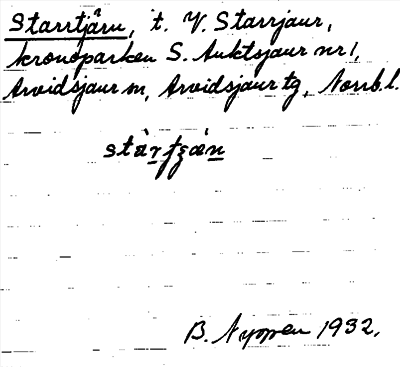 Starrtjårn, t. V. Starrjaur,
kronoparken S. Auktsjaur nr 1,
Arvidsjaur sn, Arvidsjaur tg, Norrb. l.
stàrʈʂæ̀n
B. Nyppen 1932.